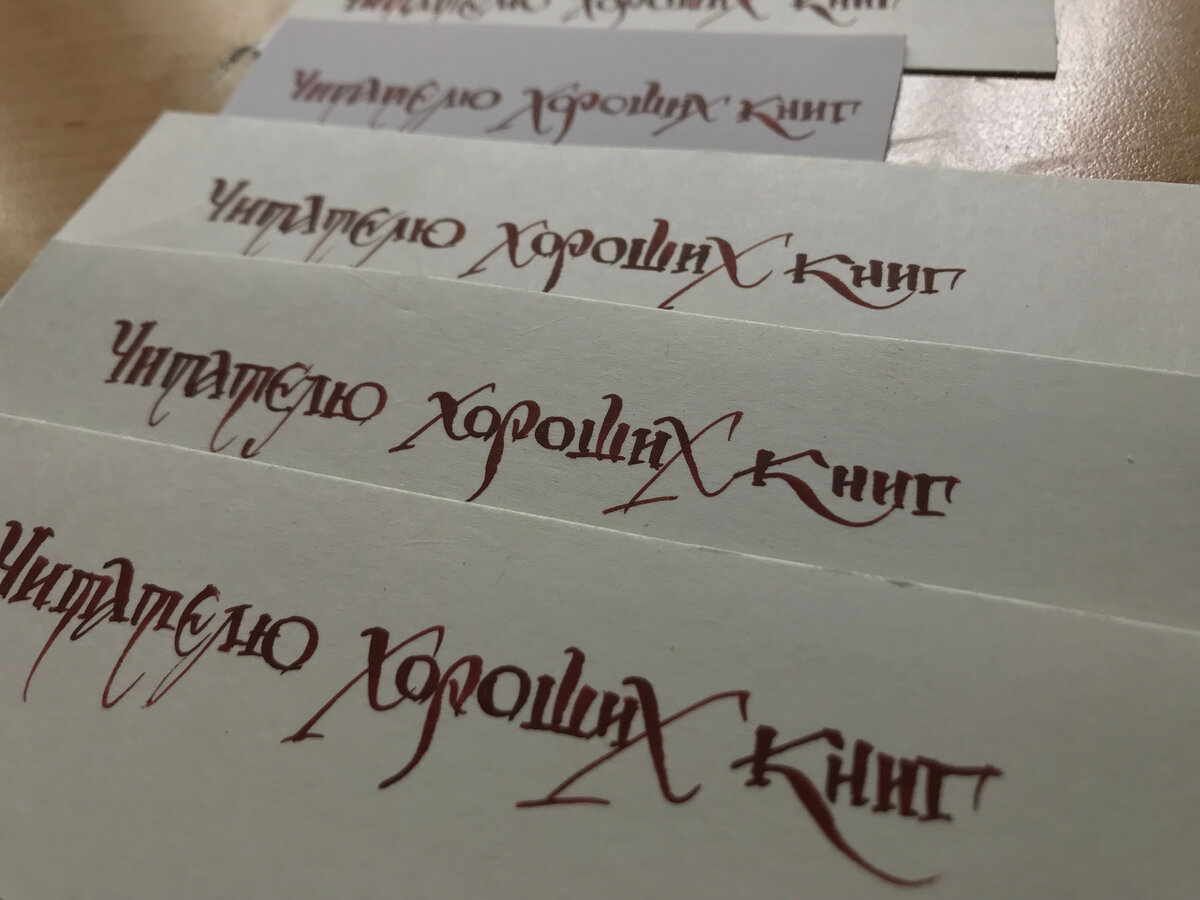 Читателю хороших книг
Читателю хороших книг
Читателю хороших книг
Читателю хороших книг
Читателю хороших книг